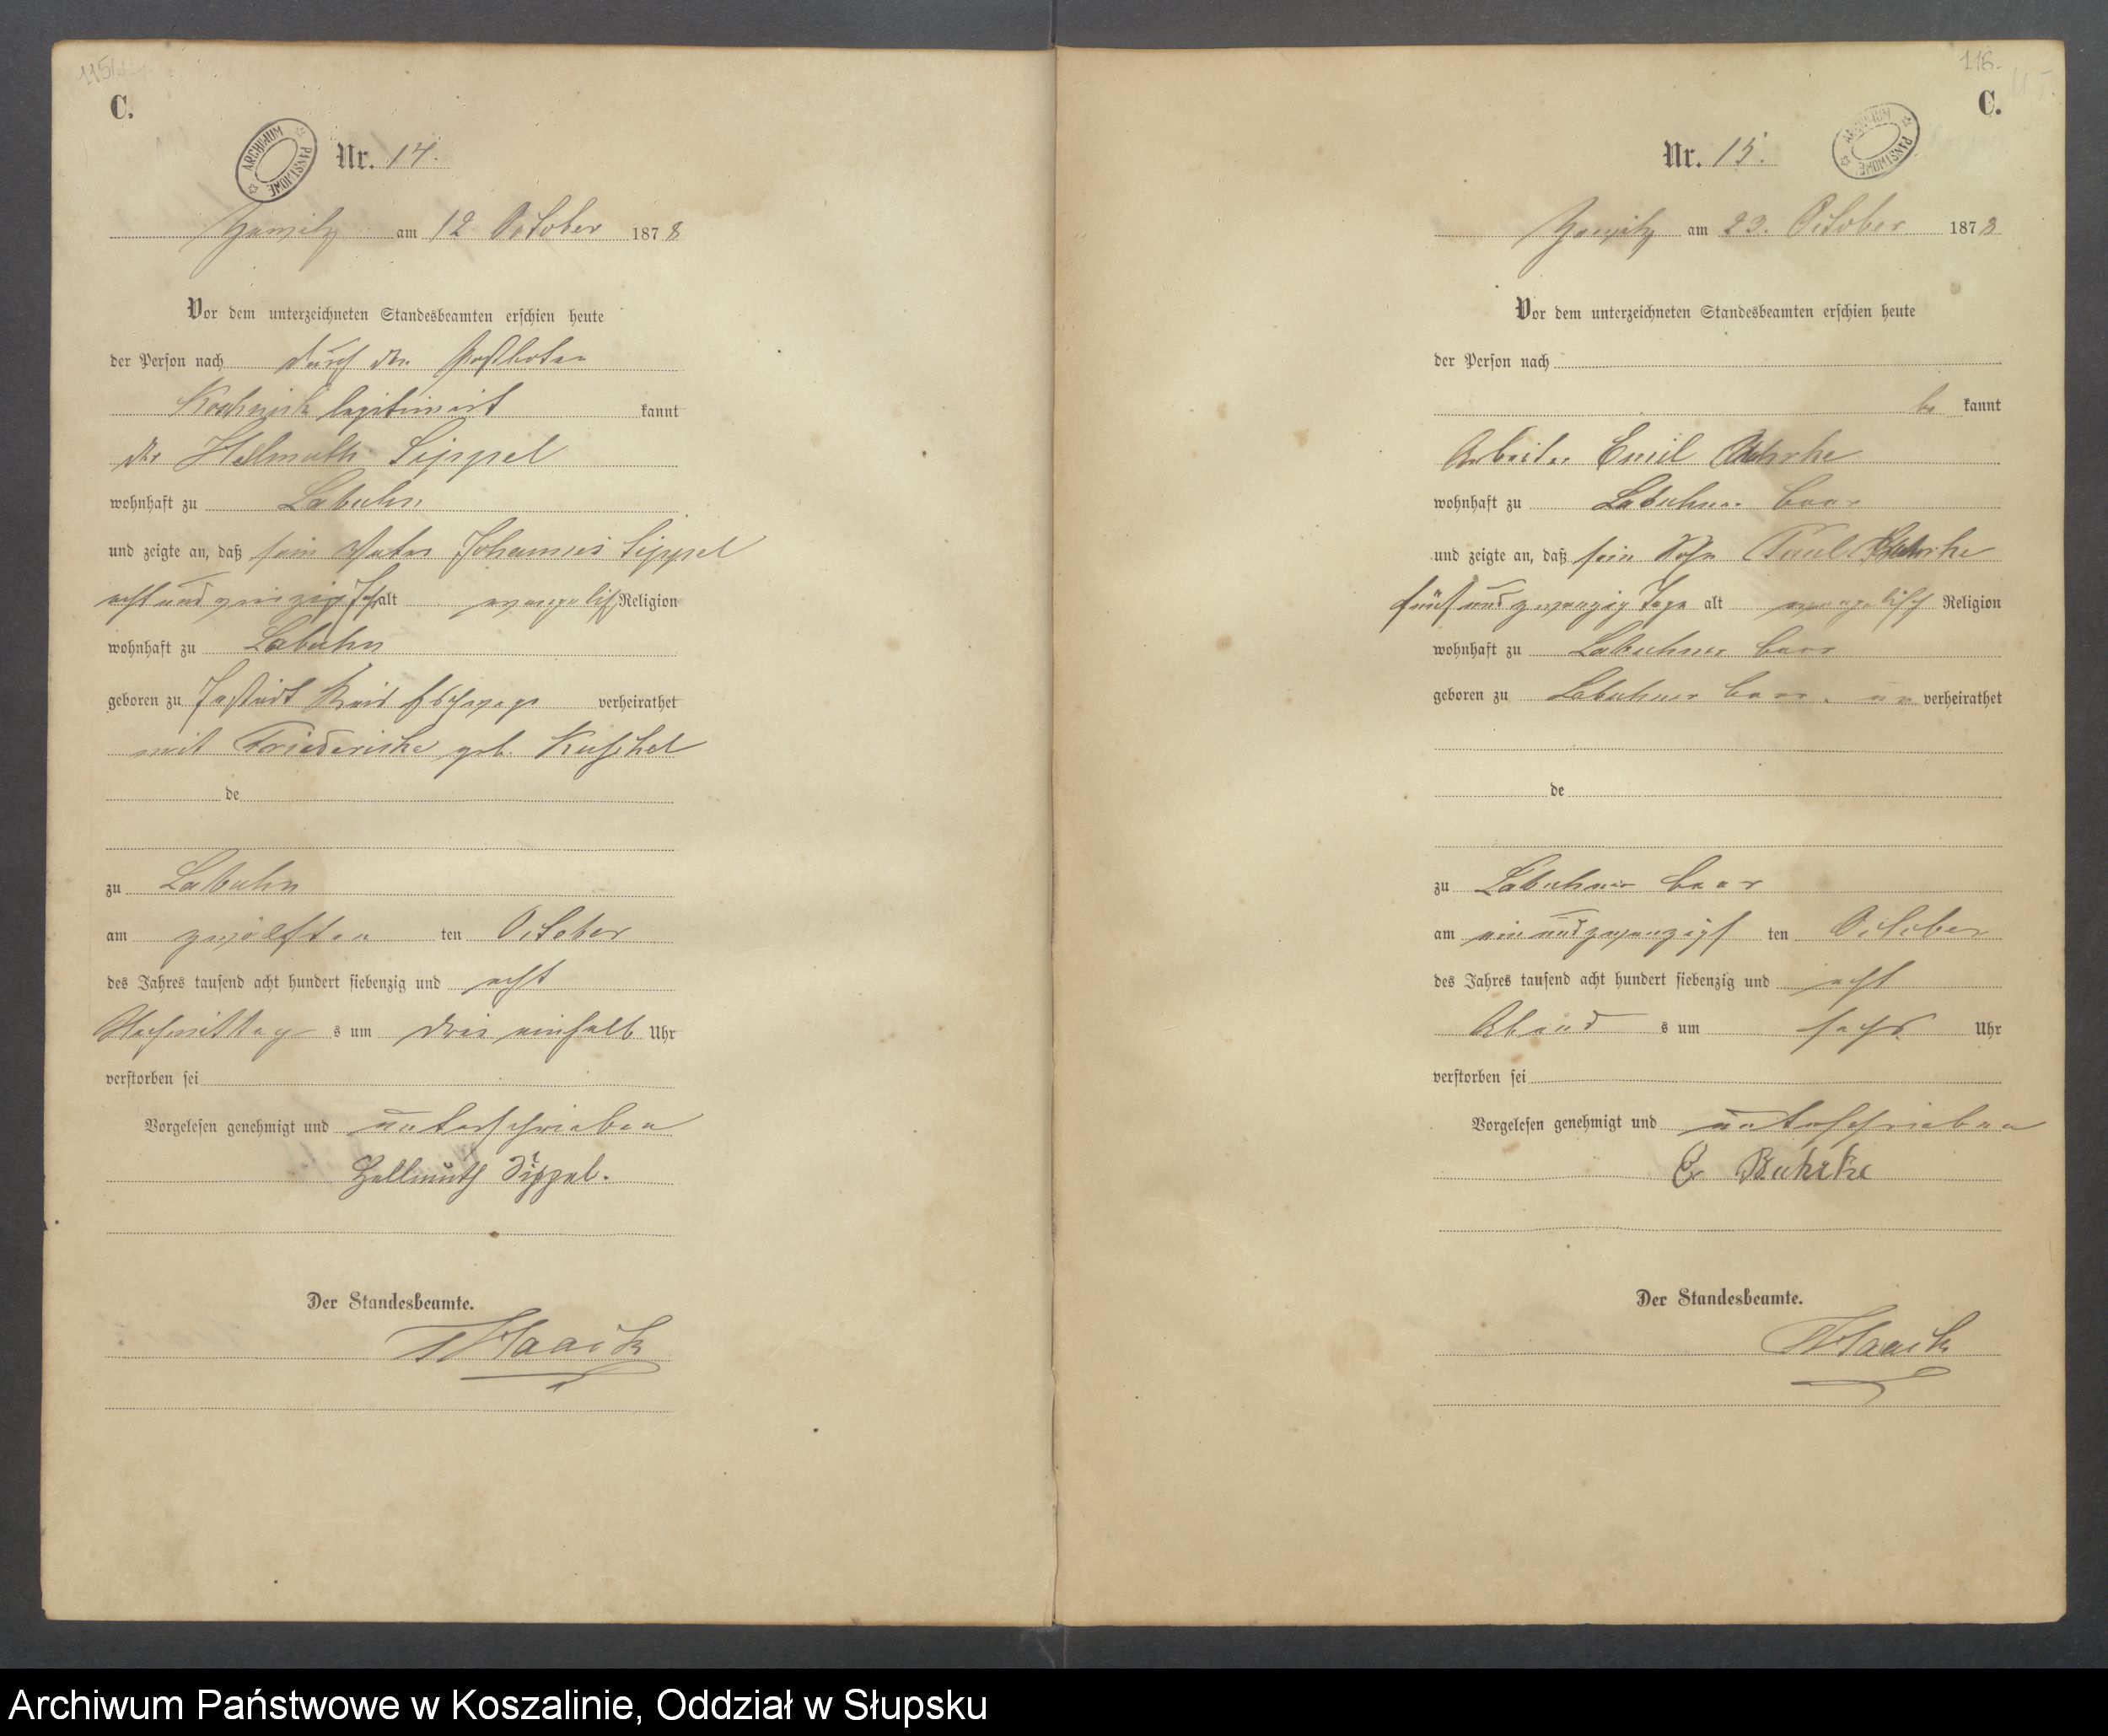 115
C.
ARCHIWUM PAŃSTWOWE
Nr. 14.
am 12 October 1878
Vor dem unterzeichneten Standesbeamten erschien heute
der Person nach durch den Postboten
Koschnick legitimirt kannt
der Hellmuth Sippel
wohnhaft zu Labuhn
und zeigte an, daß sein Vater Johannes Sippel
acht und Jahr alt evangelisch Religion
wohnhaft zu Labuhn
geboren zu Jestädt Kreis Eschwege verheirathet
mit Friederike geb. Kuschel
de
zu Labuhn
am zwölften ten October
des Jahres tausend acht hundert siebenzig und acht
Nachmittag s um drei einhalb Uhr
verstorben sei
Vorgelesen genehmigt und unterschrieben
Hellmuth Sippel.
Der Standesbeamte.
Haack
116.
C.
ARCHIWUM PAŃSTWOWE
Nr. 15.
am 23. October 1878
Vor dem unterzeichneten Standesbeamten erschien heute
der Person nach
be kannt
Arbeiter Emil Buhrke
wohnhaft zu Labuhner
und zeigte an, daß sein Sohn Paul Buhrke
fünf und zwanzig Tage alt evangelisch Religion
wohnhaft zu Labuhner
geboren zu Labuhner un verheirathet
de
zu Labuhner
am ein und zwanzigs ten October
des Jahres tausend acht hundert siebenzig und acht
Abend s um sechs Uhr
verstorben sei
Vorgelesen genehmigt und unterschrieben
E Buhrke
Der Standesbeamte.
Haack
Archiwum Państwowe w Koszalinie, Oddział w Słupsku